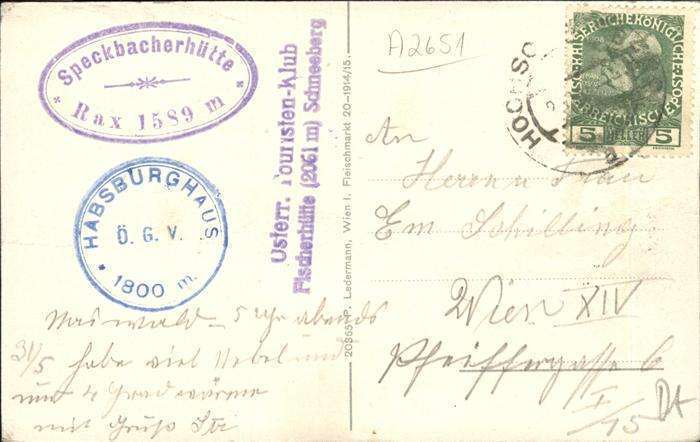 Speckbacherhütte
* Rax 1589 m *
HABSBURGHAUS
Ö. G. V.
* 1800 m.
Österr. Touristen-Klub
Fischerhütte (2061 m) Schneeberg
Nasswald – 5 Uhr abends
31/5 habe viel Nebel und
nur 4 Grad wärme
mit Gruß
20365 P. Ledermann, Wien I. Fleischmarkt 20-1914/15.
A2651
5 HELLER 5
An
Herrn u Frau
Em Schilling
Wien XIV
Pfeiffergasse 6
I/15